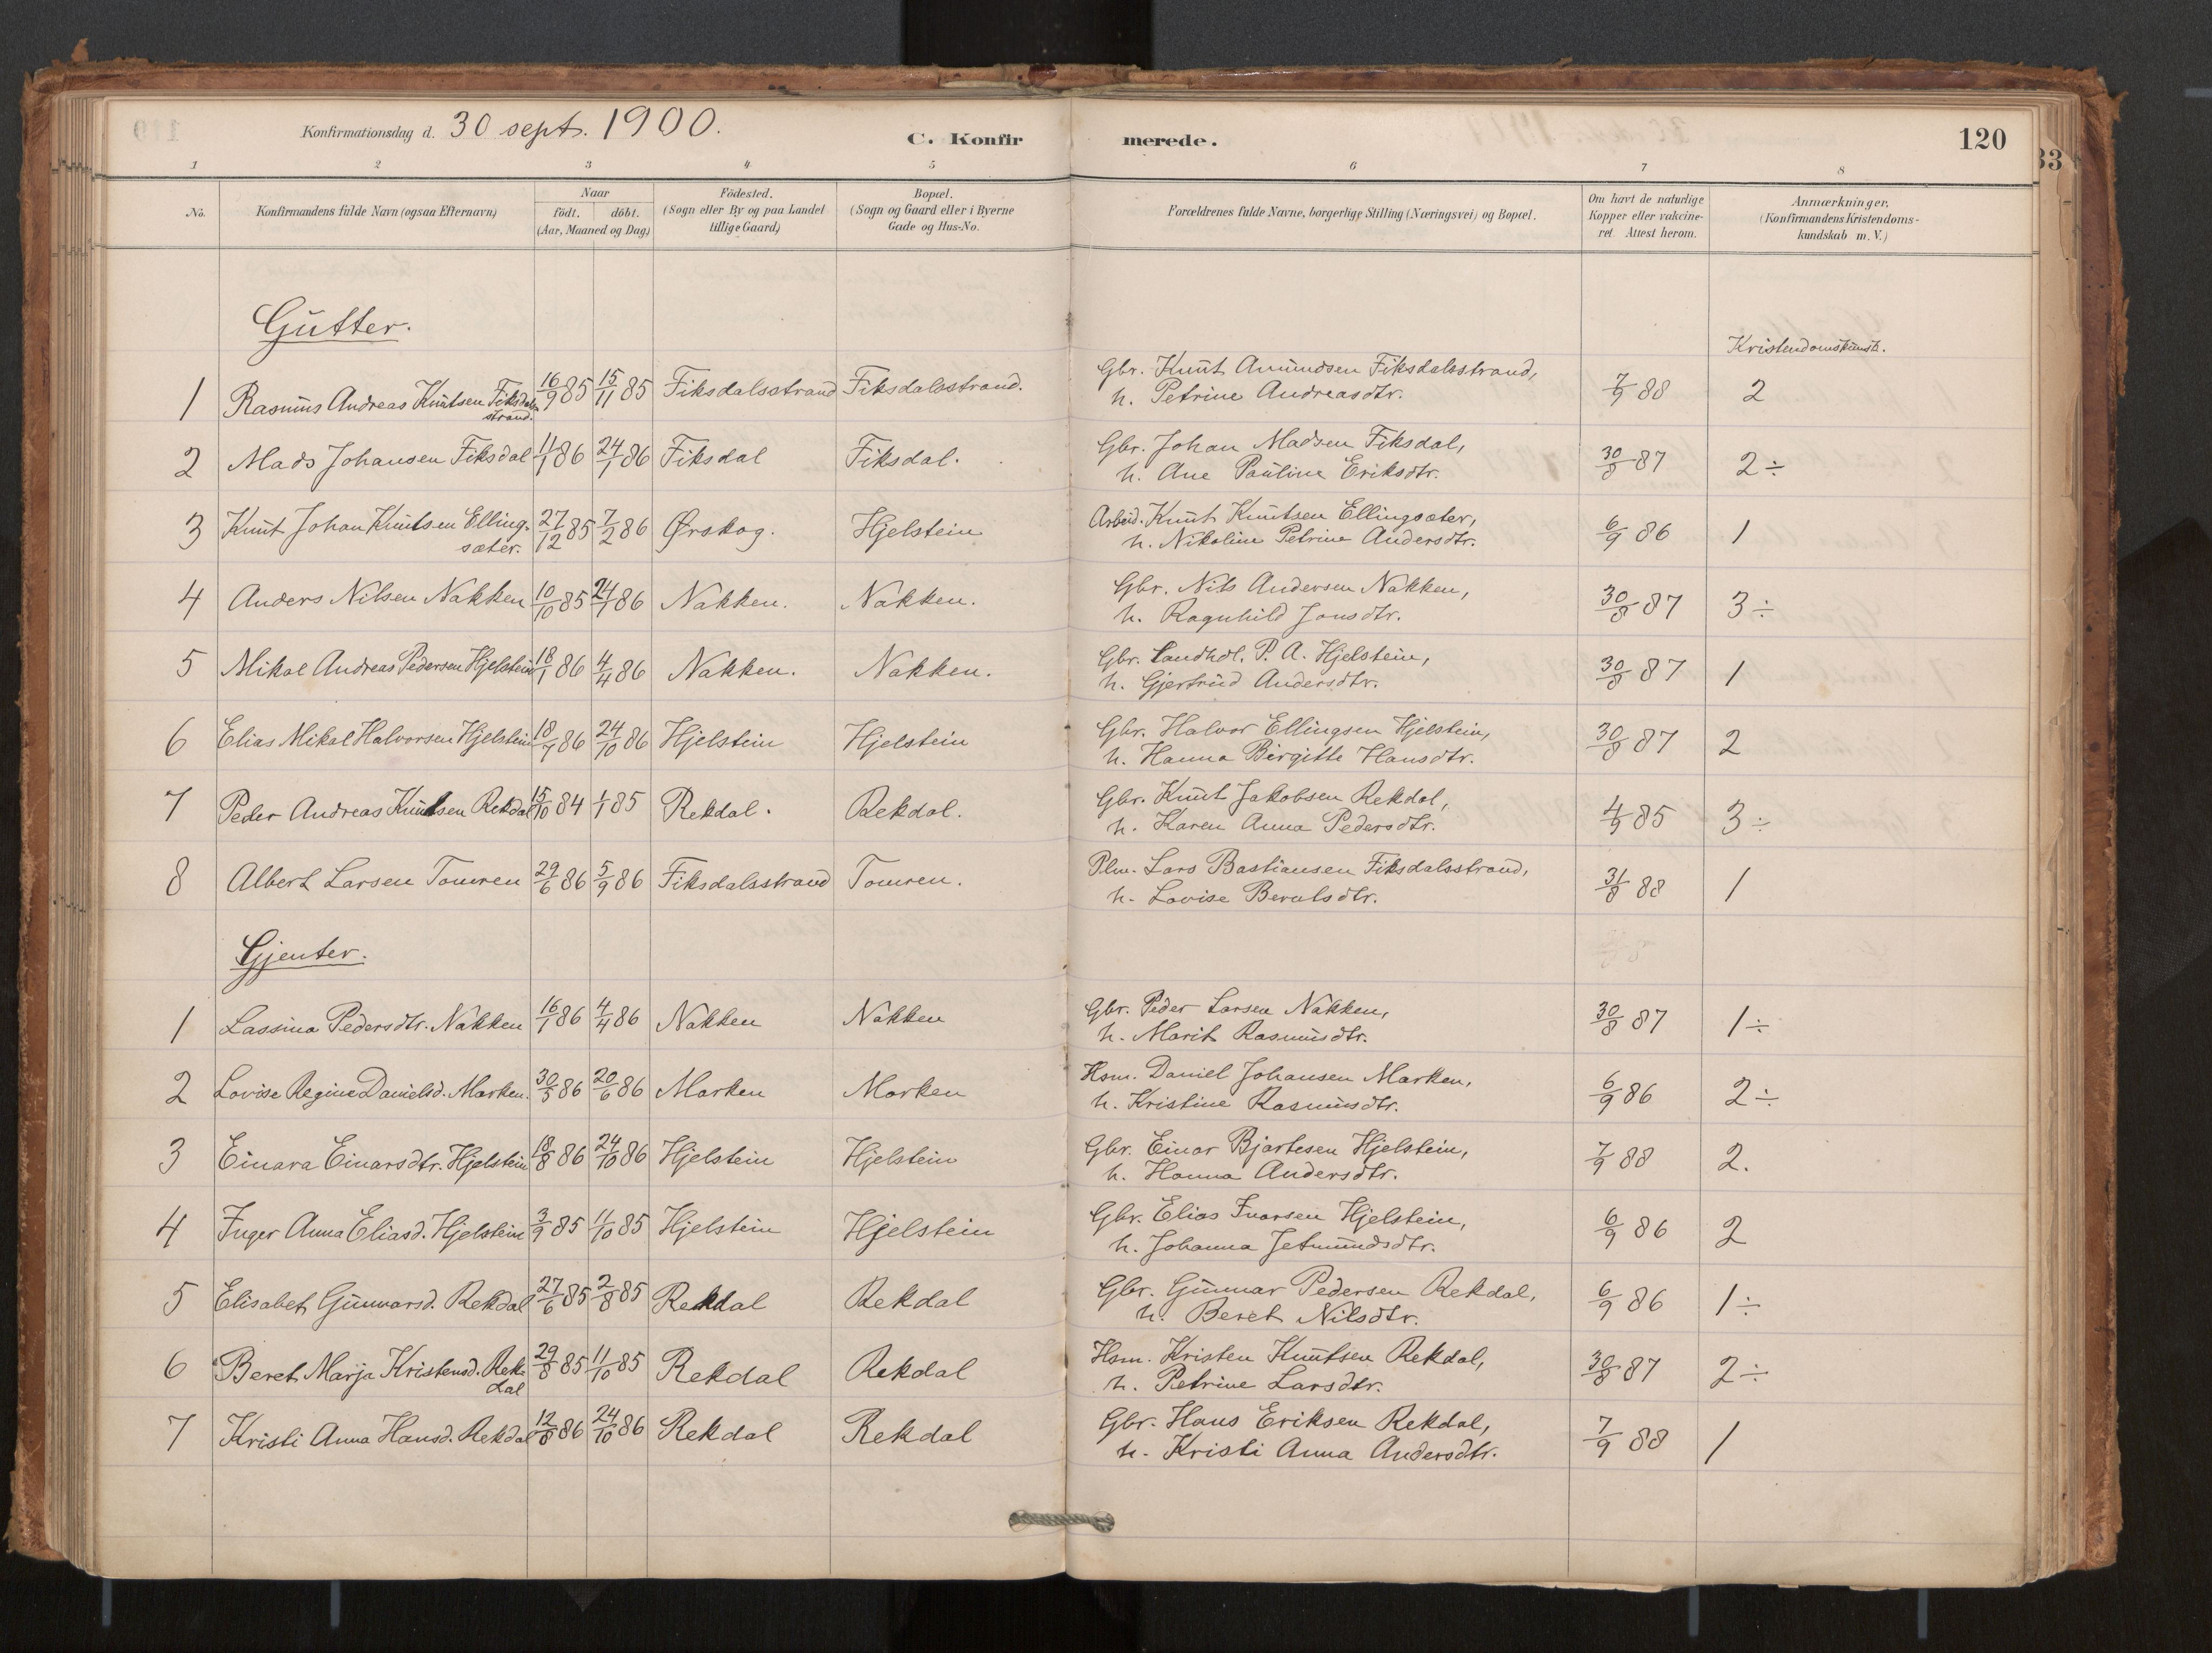 Konfirmationsdag d. 30 sept. 1900.
C. Konfirmerede.
120
33
1 2 3 4 5 6 7 8
No.
Konfirmandens fulde Navn (ogsaa Efternavn)
Naar
født. døbt.
(Aar, Maaned og Dag)
Fødested.
(Sogn eller By og paa Landet
tillige Gaard)
Bopæl.
(Sogn og Gaard eller i Byerne
Gade og Hus-No.
Forældrenes fulde Navne, borgerlige Stilling (Næringsvei) og Bopæl.
Om havt de naturlige
Kopper eller vakcine-
ret. Attest herom.
Anmærkninger.
(Konfirmandens Kristendoms-
kundskab m. V.)
Gutter.
Kristendomskunsk.
1 Rasmus Andreas Knutsen Fiksdals- 16/9 85 15/11 85 Fiksdalsstrand Fiksdalsstrand. Gbr. Knut Amundsen Fiksdalsstrand, 7/9 88 2
strand. h. Petrine Andreasdtr.
2 Mads Johansen Fiksdal 11/1 86 24/1 86 Fiksdal Fiksdal. Gbr. Johan Madsen Fiksdal, 30/8 87 2 ÷
h. Ane Pauline Eriksdtr.
3 Knut Johan Knutsen Elling- 27/12 85 7/2 86 Ørskog. Hjelstein Arbeid. Knut Knutsen Ellingsæter, 6/9 86 1
sæter. h. Nikoline Petrine Andersdtr.
4 Anders Nilsen Nakken 10/10 85 24/1 86 Nakken. Nakken. Gbr. Nils Andersen Nakken, 30/8 87 3 ÷
h. Ragnhild Jonsdtr.
5 Mikal Andreas Pedersen Hjelstein 18/1 86 4/4 86 Nakken. Nakken. Gbr. Landhdl. P. A. Hjelstein, 30/8 87 1
h. Gjertrud Andersdtr.
6 Elias Mikal Halvorsen Hjelstein 18/9 86 24/10 86 Hjelstein Hjelstein Gbr. Halvor Ellingsen Hjelstein, 30/8 87 2
h. Hanna Birgitte Hansdtr.
7 Peder Andreas Knutsen Rekdal 15/10 84 1/1 85 Rekdal. Rekdal. Gbr. Knut Jakobsen Rekdal, 4/9 85 3 ÷
h. Karen Anna Pedersdtr.
8 Albert Larsen Tomren 29/6 86 5/9 86 Fiksdalsstrand Tomren. Plm. Lars Bastiansen Fiksdalsstrand, 31/8 88 1
h. Lovise Berntsdtr.
Gjenter.
1 Lassina Pedersdtr. Nakken 16/1 86 4/4 86 Nakken Nakken Gbr. Peder Larsen Nakken, 30/8 87 1 ÷
h. Marit Rasmusdtr.
2 Lovise Regine Danielsd. Marken. 30/5 86 20/6 86 Marken Marken Hsm. Daniel Johansen Marken, 6/9 86 2 ÷
h. Kristine Rasmusdtr.
3 Einara Einarsdtr. Hjelstein 18/8 86 24/10 86 Hjelstein Hjelstein Gbr. Einar Bjartesen Hjelstein, 7/9 88 2.
h. Hanna Andersdtr.
4 Inger Anna Eliasd. Hjelstein 3/9 85 11/10 85 Hjelstein Hjelstein Gbr. Elias Ivarsen Hjelstein, 6/9 86 2
h. Johanna Jetmundsdtr.
5 Elisabet Gunnarsd. Rekdal 27/6 85 2/8 85 Rekdal Rekdal Gbr. Gunnar Pedersen Rekdal, 6/9 86 1 ÷
h. Beret Nilsdtr.
6 Beret Marja Kristensd. Rek- 29/8 85 11/10 85 Rekdal Rekdal Hsm. Kristen Knutsen Rekdal, 30/8 87 2 ÷
dal h. Petrine Larsdtr.
7 Kristi Anna Hansd. Rekdal 12/8 86 24/10 86 Rekdal Rekdal Gbr. Hans Eriksen Rekdal, 7/9 88 1
h. Kristi Anna Andersdtr.